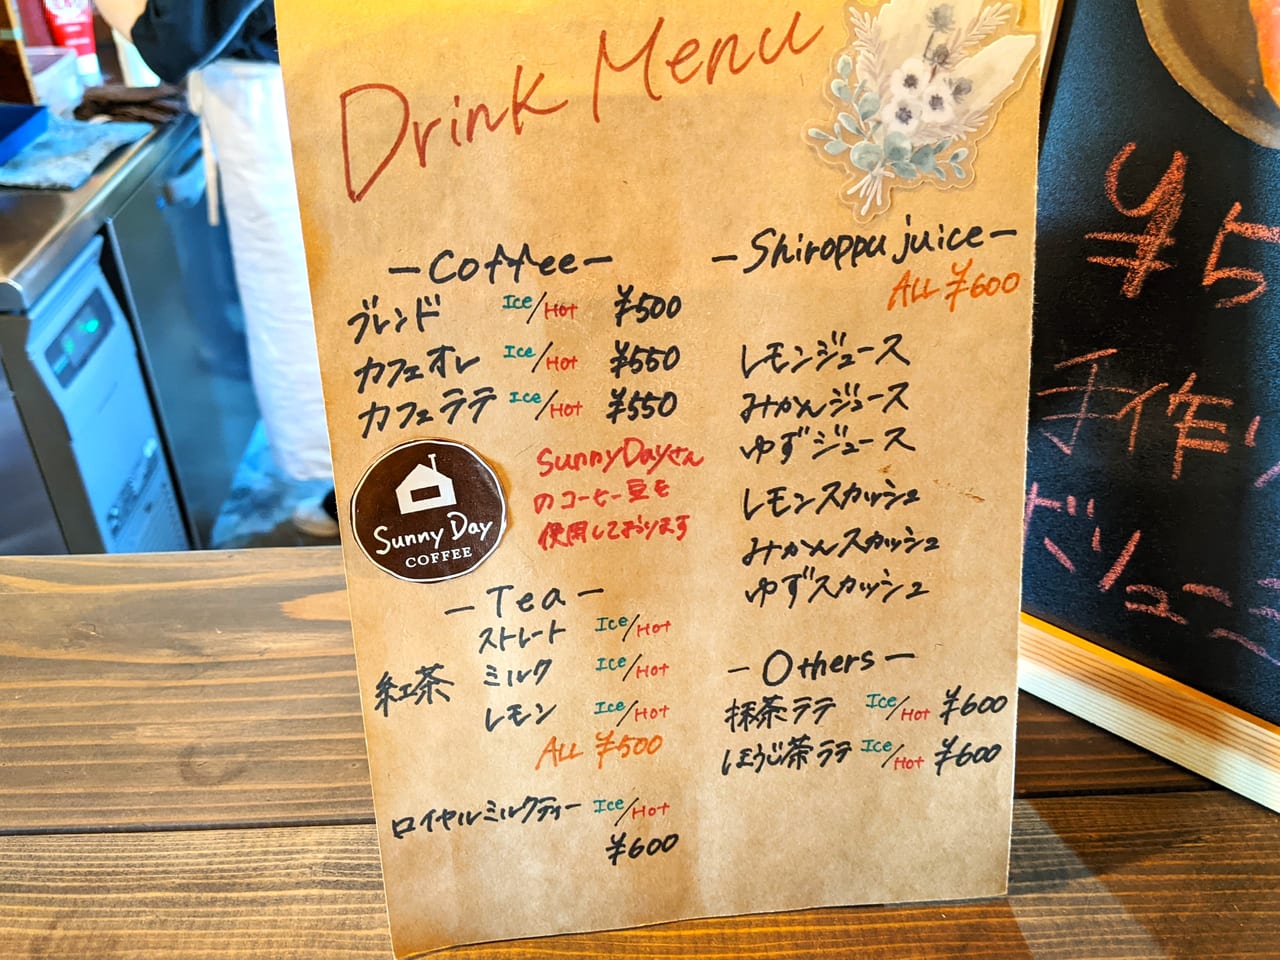 Drink Menu
— Coffee —
ブレンド Ice/Hot ¥500
カフェオレ Ice/Hot ¥550
カフェラテ Ice/Hot ¥550
Sunny Day
COFFEE
SunnyDayさん
のコーヒー豆を
使用しております
— Tea —
紅茶
ストレート Ice/Hot
ミルク Ice/Hot
レモン Ice/Hot
ALL ¥500
ロイヤルミルクティー Ice/Hot
¥600
— Shiroppu juice —
ALL ¥600
レモンジュース
みかんジュース
ゆずジュース
レモンスカッシュ
みかんスカッシュ
ゆずスカッシュ
— Others —
抹茶ラテ Ice/Hot ¥600
ほうじ茶ラテ Ice/Hot ¥600
¥5
手作り